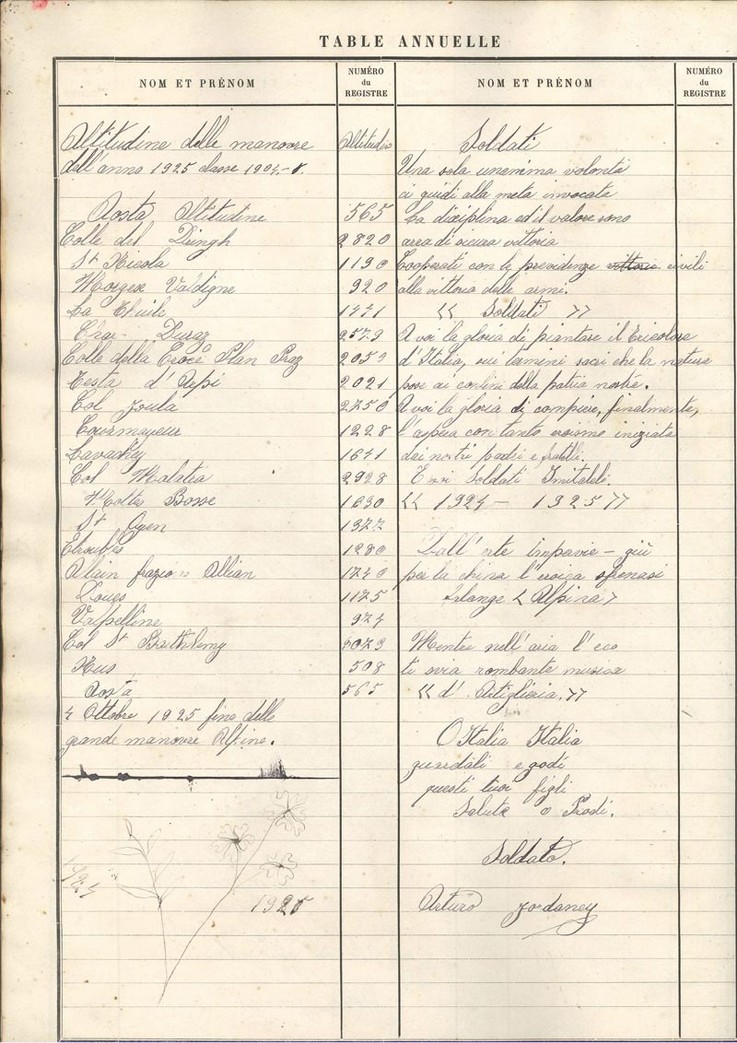 TABLE ANNUELLE
NOM ET PRÉNOM
NUMÉRO
du
REGISTRE
Altitudine delle manovre Altitudin
dell'anno 1925 classe 1904-5.
Aosta Altitudine 565
Colle del Dringh 2820
St Nicola 1190
Morgex Valdigne 920
La Thuile 1441
2579
Colle della Croce Plan Praz 2053
Testa d'Arpi 2021
Col Joula 2450
Courmayeur 1228
Lavachey 1641
Col Malatia 2928
Motta Bosse 1630
St Oyen 1377
Etroubles 1280
Allain frazione Allian 1240
Doues 1175
Valpelline 924
Col St Barthélemy 3023
Nus 508
Aosta 565
4 Ottobre 1925 fine delle
grande manovre Alpine.
1924
1925
NOM ET PRÉNOM
NUMÉRO
du
REGISTRE
Soldati
Una sola unemima volontà
ci guidi alla meta invocata
La disciplina ed il valore sono
area di sicura vittoria
Cooperati con le previdenze vittoria civili
alla vittoria delle armi.
<< Soldati >>
A voi la gloria di piantare il Tricolore
d'Italia, sui termini sacri che la natura
pose ai confini della patria nostra.
A voi la gloria di compiere, finalmente,
l'aspera con tanto eroismo iniziata
dai nostri padri e fratelli.
Eroi Soldati Imitateli.
<< 1924 – 1925 >>
Dall' erte impavie – giù
per la china l'eroica
falange < Alpina >
Mentre nell'aria l'eco
ti svia rombante musica
<< d' Artiglieria. >>
O Italia Italia
guardali e godi
questi tuoi figli
Salute o Prodi.
Soldato.
Arturo Jordaney